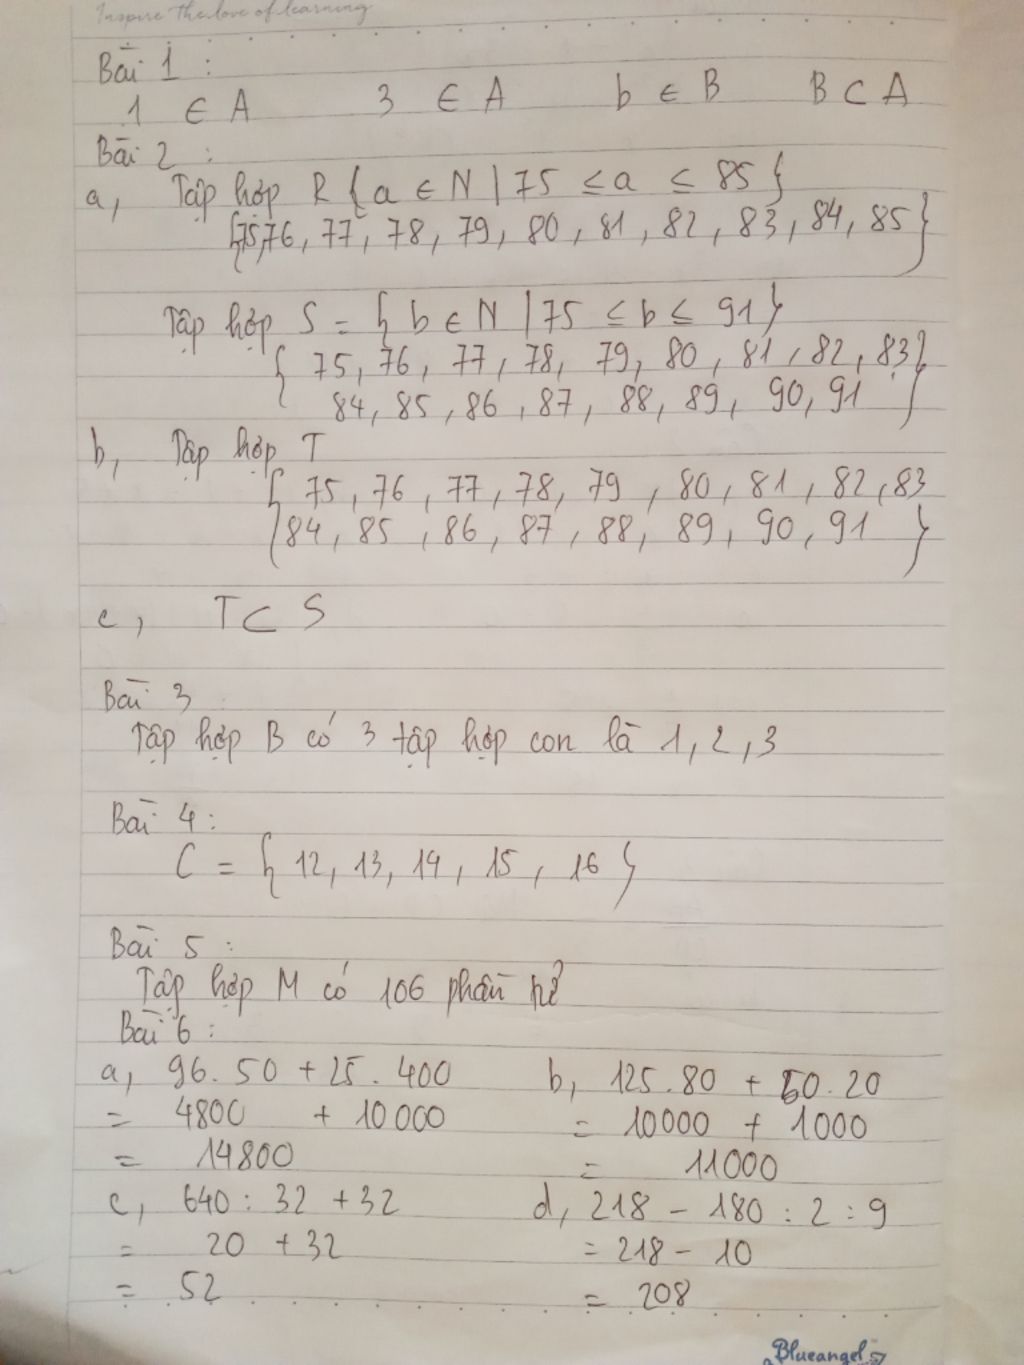 Inspire the love of learning
Bài 1 :
1 ∈ A 3 ∈ A b ∈ B B ⊂ A
Bài 2 :
a, Tập hợp R { a ∈ N | 75 ≤ a ≤ 85 }
{75,76, 77, 78, 79, 80, 81, 82, 83, 84, 85}
Tập hợp S = { b ∈ N | 75 ≤ b ≤ 91 }
{ 75, 76, 77, 78, 79, 80, 81, 82, 83
84, 85, 86, 87, 88, 89, 90, 91 }
b, Tập hợp T
{ 75, 76, 77, 78, 79, 80, 81, 82, 83
84, 85, 86, 87, 88, 89, 90, 91 }
c, T ⊂ S
Bài 3
Tập hợp B có 3 tập hợp con là 1, 2, 3
Bài 4 :
C = { 12, 13, 14, 15, 16 }
Bài 5 :
Tập hợp M có 106 phần tử
Bài 6 :
a, 96 . 50 + 25 . 400
= 4800 + 10000
= 14800
b, 125 . 80 + 50 . 20
= 10000 + 1000
= 11000
c, 640 : 32 + 32
= 20 + 32
= 52
d, 218 - 180 : 2 : 9
= 218 - 10
= 208
Blueangel